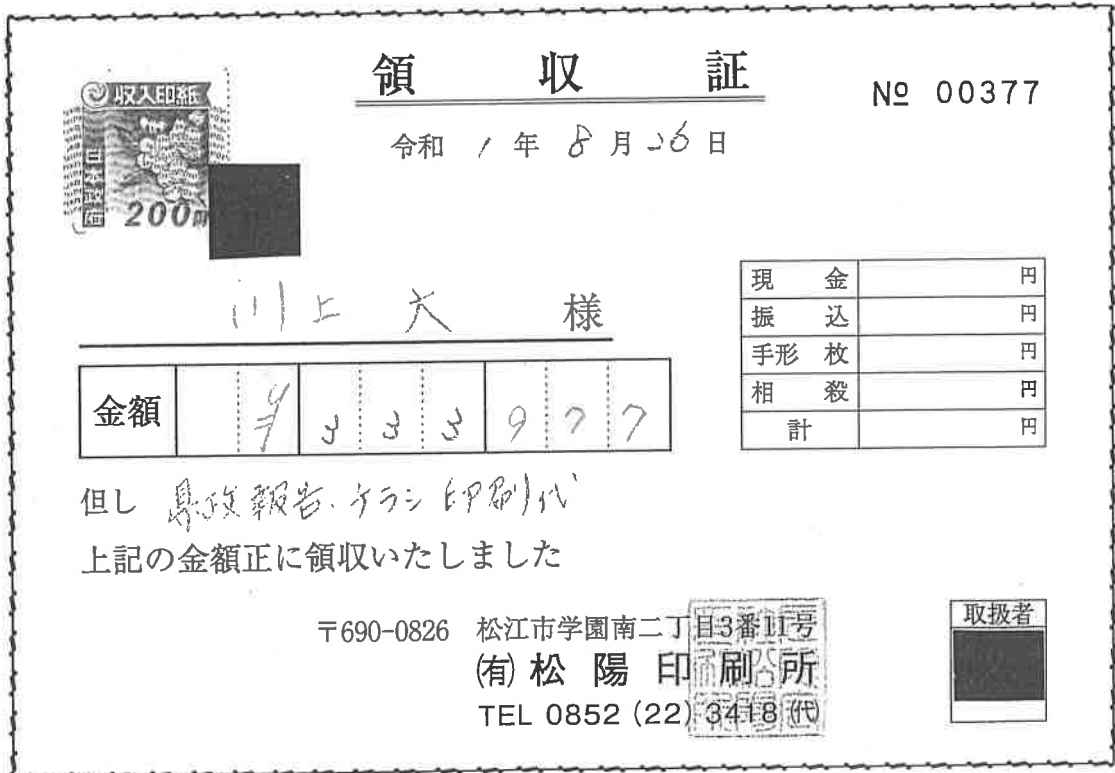 領収証
№ 00377
収入印紙
日本政府
200円
令和 1 年 8 月 26 日
川上 大 様
現金 円
振込 円
手形 枚 円
相殺 円
計 円
金額 ¥333977
但し 県政報告・チラシ印刷代
上記の金額正に領収いたしました
〒690-0826 松江市学園南二丁目3番11号
(有) 松陽印刷所
TEL 0852 (22) 3418 (代)
取扱者